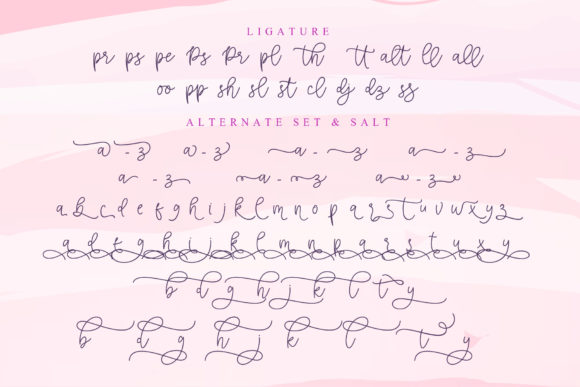 LIGATURE
pr ps pe Ps Pr pl th tt alt ll all
oo pp sh sl st cl dj dz ss
ALTERNATE SET & SALT
a - z a - z a - z a - z
a - z a - z a - z
a b c d e f g h i j k l m n o p q r s t u v w x y z
a d e f g h i j k l m n p q r s t u x y
b d g h j k l t y
b d g h j k l t y